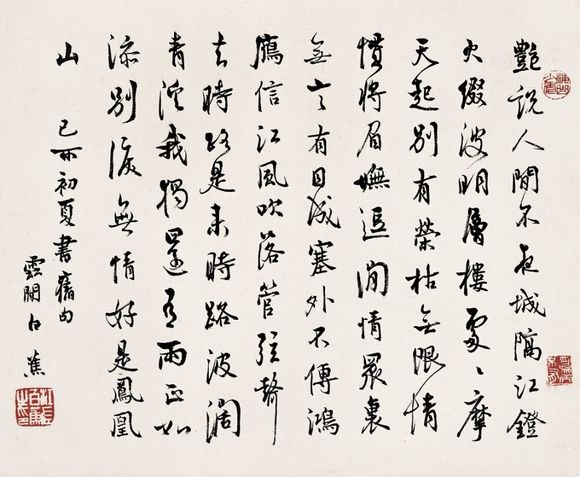 豔說人間不夜城隔江鐙
火綴波明層樓處〻摩
天起別有榮枯無限情
慣將眉嫵逗閒情眾裏
無言有目成塞外不傳鴻
鴈信江風吹落管弦聲
去時路是來時路波濶
青溪我獨還有雨正如
添別淚無情好是鳳凰
山
己亥初夏書舊句
雲間白蕉